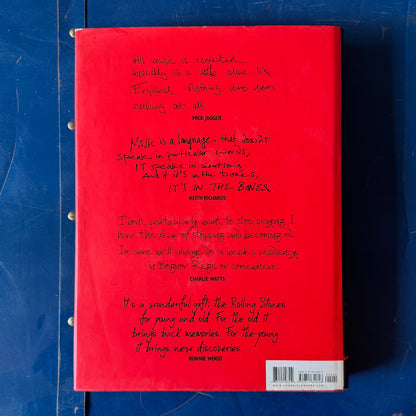 All music is connected
especially in a little place like
England. Nothing comes from
nothing at all
MICK JAGGER
MUSIC IS A language that doesn't
speak in particular words,
IT speaks in emotions
And if it's in the bones,
IT'S IN THE BONES
KEITH RICHARDS
I don't particularly want to stop playing, I
have this fear of stopping and becoming old
I'm sure we'll always do a week's residency
in Bognor Regis or somewhere
CHARLIE WATTS
It's a wonderful gift, the Rolling Stones
for young and old. For the old it
brings back memories. For the young
it brings new discoveries
RONNIE WOOD